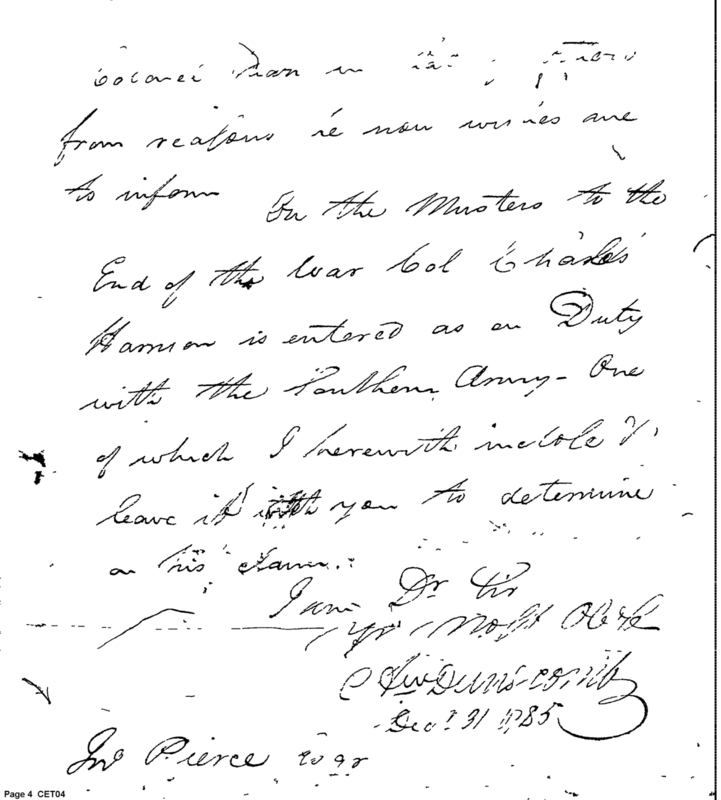 Colonel
from reasons he now wishes me
to inform
In the Musters to the
End of the War Col Charles
Harrison is entered as on Duty
with the Southern Army - One
of which I herewith inclose &
leave it with you to determine
on his claim.
I am Dr Sir
Yr Most Obt
Dec.r 31 1785
Jno Pierce Esqr
Page 4 CET04